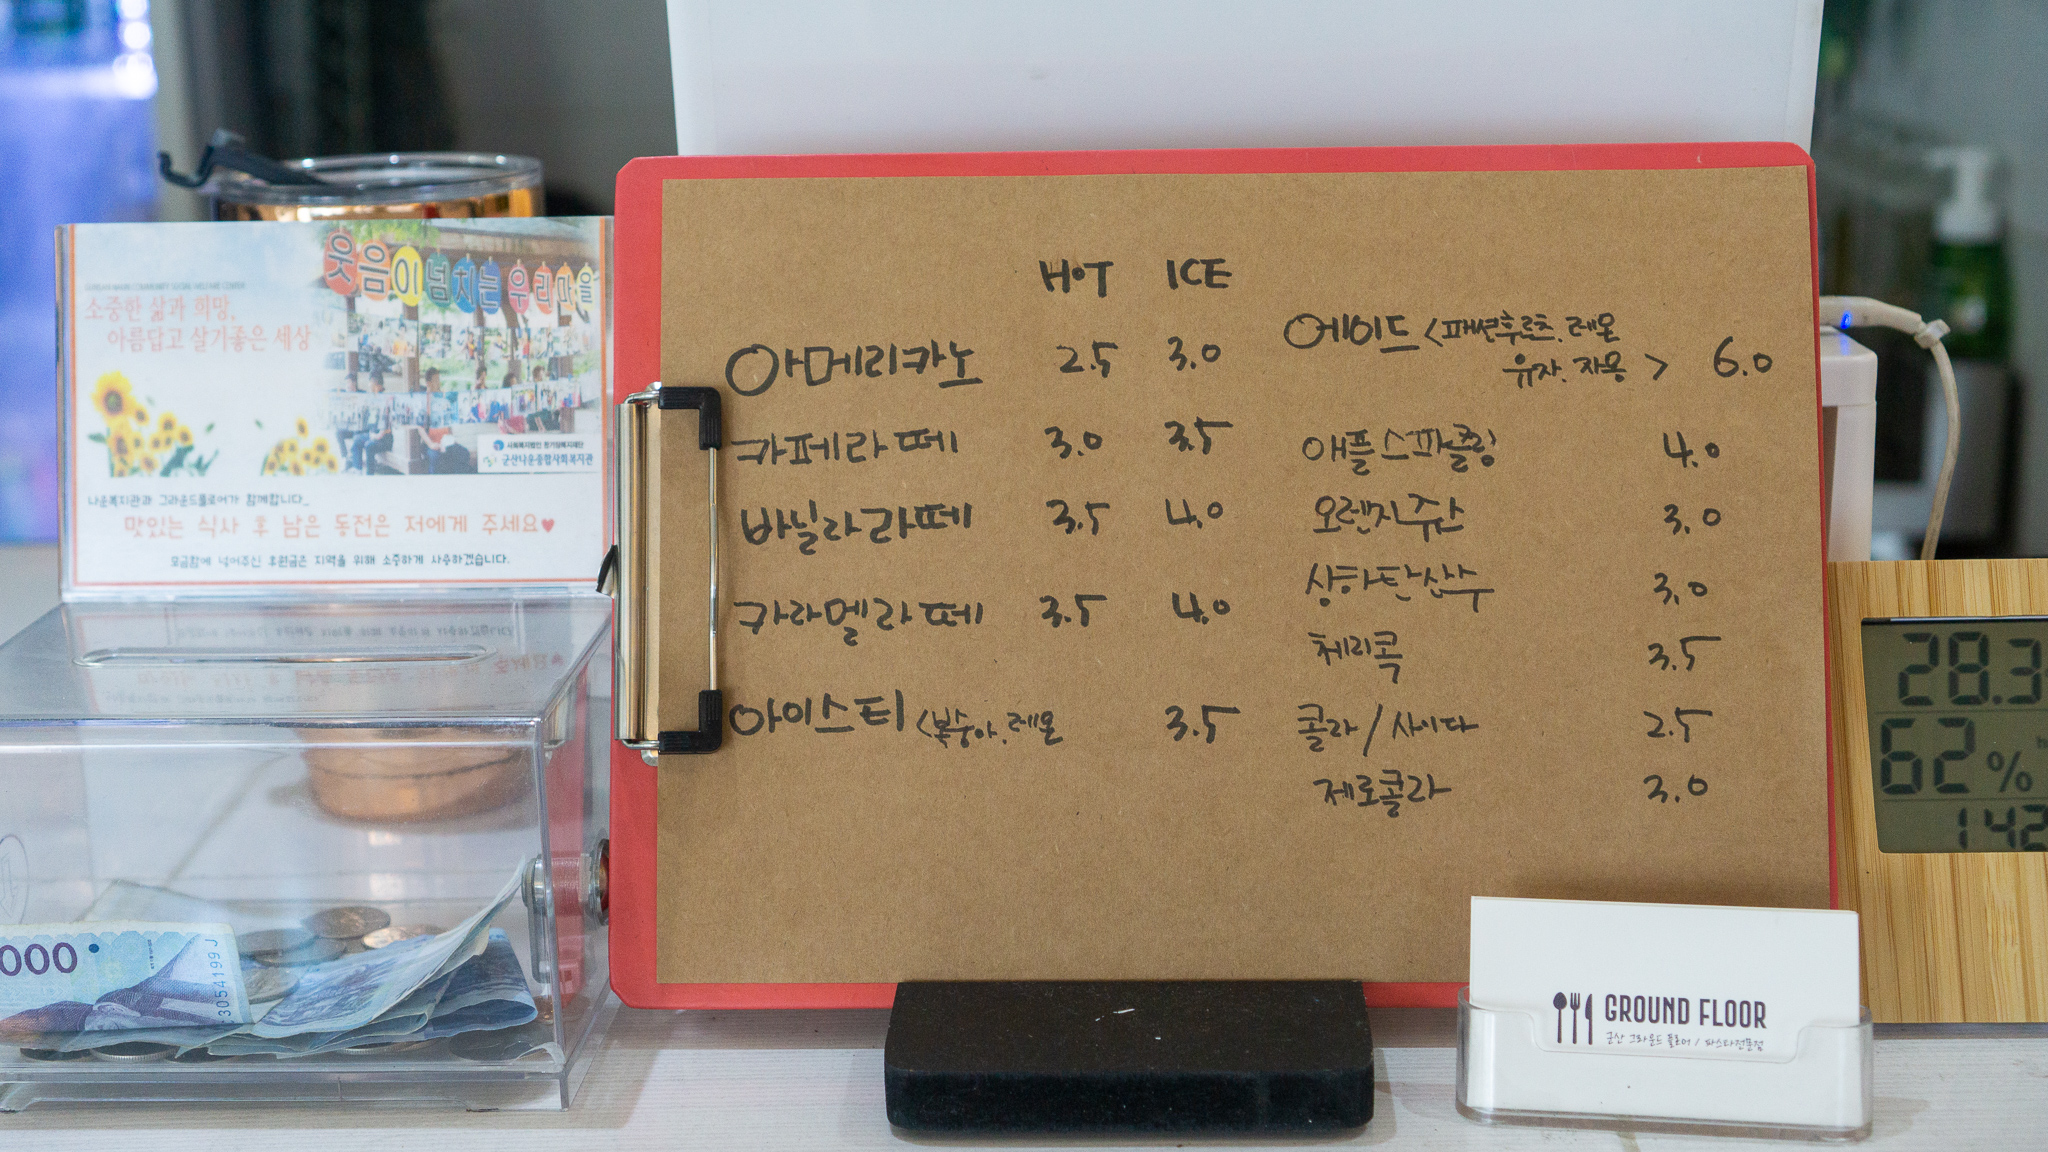 웃음이 넘치는 우리마을
소중한 삶과 희망,
아름답고 살기좋은 세상
군산나운종합사회복지관
나운복지관과 그라운드플로어가 함께합니다_
맛있는 식사 후 남은 동전은 저에게 주세요♥
모금함에 넣어주신 후원금은 지역을 위해 소중하게 사용하겠습니다.
000
3054199J
HOT ICE
아메리카노 2.5 3.0
카페라떼 3.0 3.5
바닐라라떼 3.5 4.0
카라멜라떼 3.5 4.0
아이스티 <복숭아, 레몬 3.5
에이드 <패션후르츠, 레몬
유자, 자몽 > 6.0
애플스파클링 4.0
오렌지쥬스 3.0
상하탄산수 3.0
체리콕 3.5
콜라/사이다 2.5
제로콜라 3.0
28.3
62%
142
GROUND FLOOR
군산 그라운드 플로어 / 파스타전문점